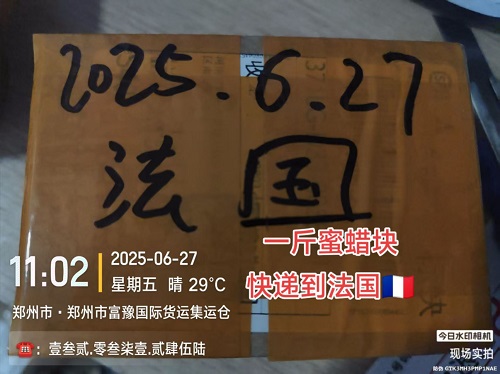 2025.6.27
法国
一斤蜜蜡块
快递到法国🇫🇷
11:02
2025-06-27
星期五 晴 29℃
郑州市·郑州市富豫国际货运集运仓
☎：壹叁贰.零叁柒壹.贰肆伍陆
今日水印相机
现场实拍
防伪 GTK3MH3PMP1NAE